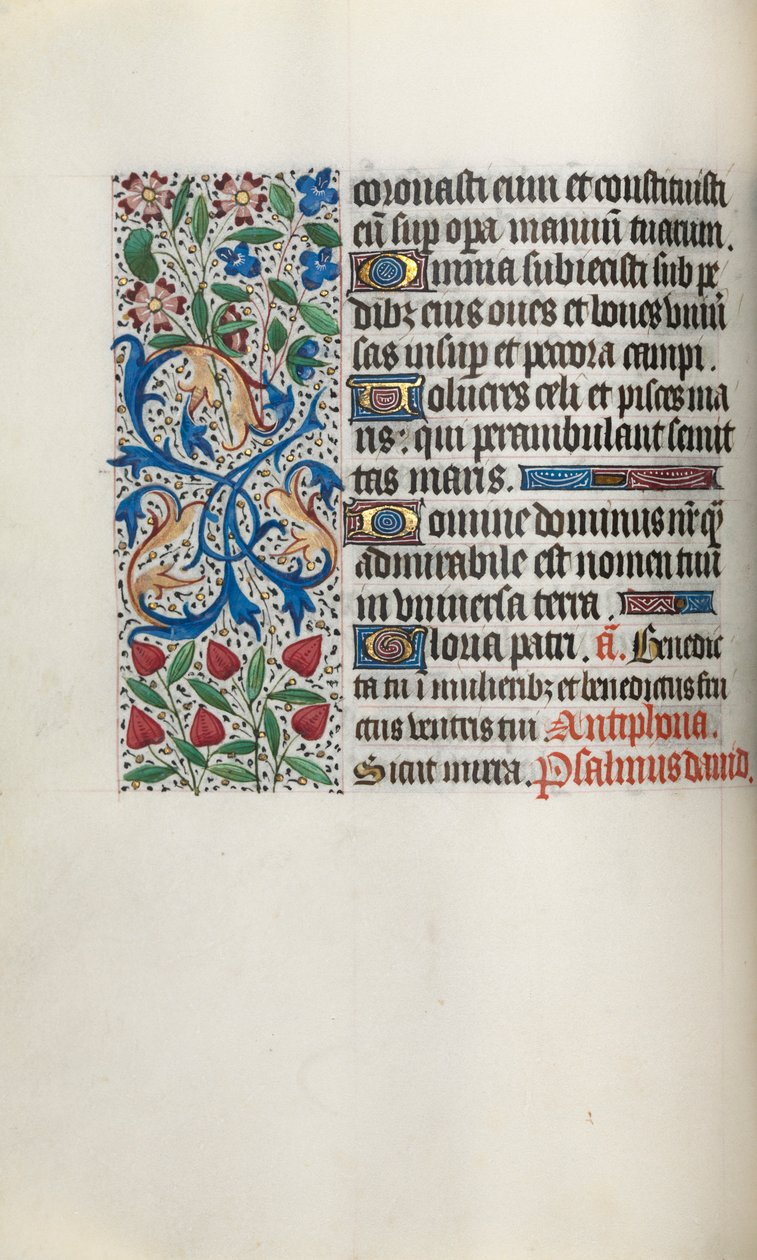 coronasti eum et constituisti
eū sup opa manuū tuarum.
Omnia subiecisti sub pe
dibꝫ eius oues et boues vniū
sas insup et peccora campi.
Uolucres celi et pisces ma
ris: qui perambulant semit
tas maris.
Domine dominus nr̄ q̄
admirabile est nomen tuū
in vniuersa terra.
Gloria patri. ā. Benedic
ta tu ī mulieribꝫ et benedictus fru
ctus ventris tui Antiphona.
Sicut mirra. Psalmus dauid.